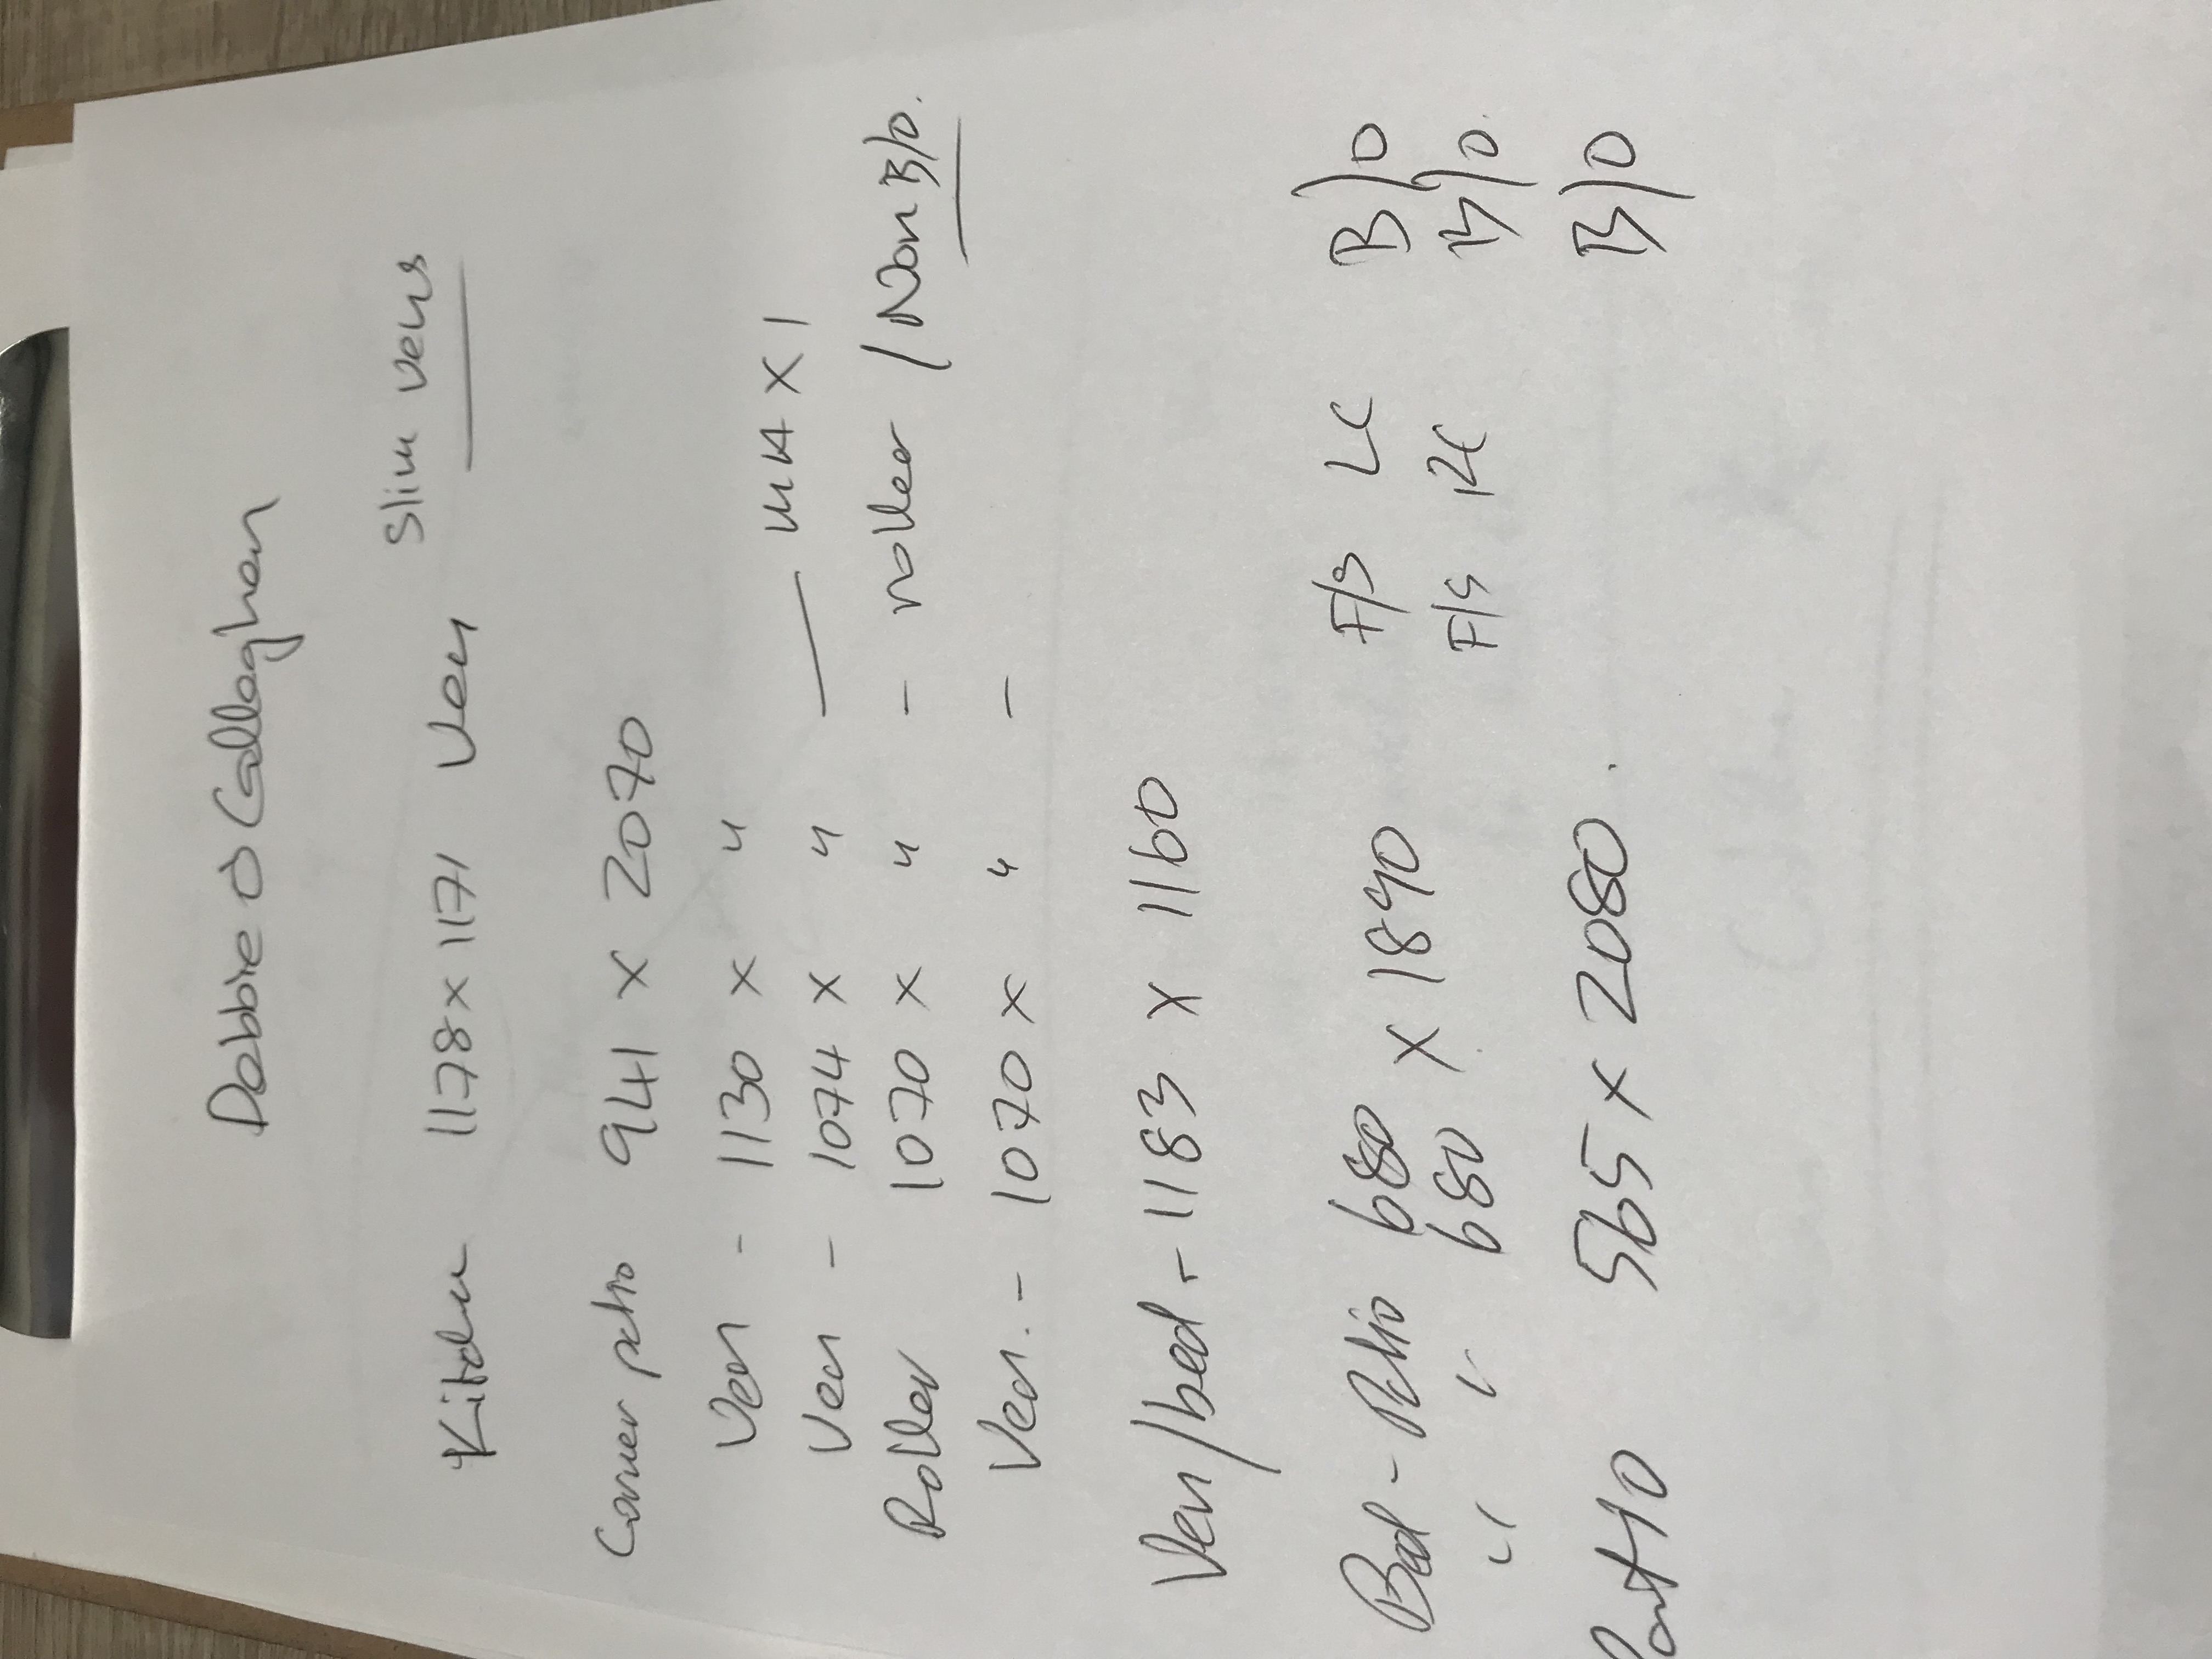 Debbie O Callaghan
Kitchen 1178 x 1171 Ven Slim vens
Corner patio 941 x 2070
Ven - 1130 x "
Ven - 1074 x " — x 1
Roller 1070 x " - roller / Non B/o.
Ven. - 1070 x " -
Ven/bed - 1183 x 1160
Bed - Patio 680 x 1840 F/s LC B/O
" " 680 F/s RC B/O.
565 x 2080. B/O